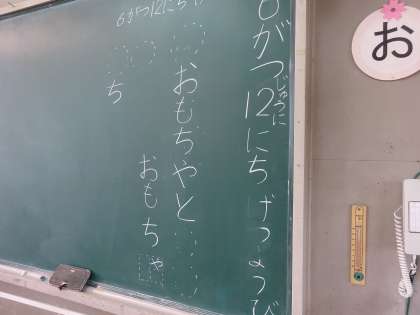 お
6がつ12にち げつようび
じゅうに
おもちやと
おもちゃ
ゃ
ち
6がつ12にち